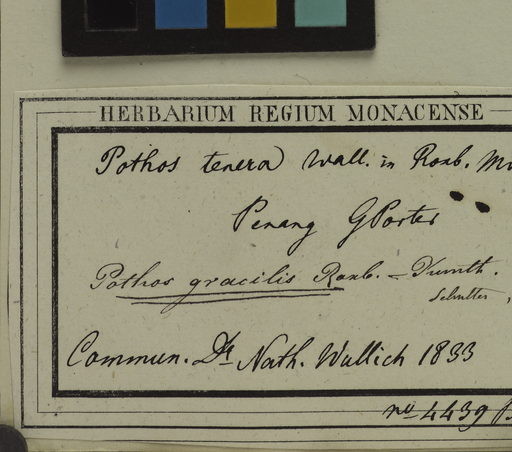 HERBARIUM REGIUM MONACENSE
Pothos tenera Wall. in Roxb.
Penang GPorter
Pothos gracilis Roxb. – Kunth.
Schultes,
Commun. Dr Nath. Wallich 1833
no 4439